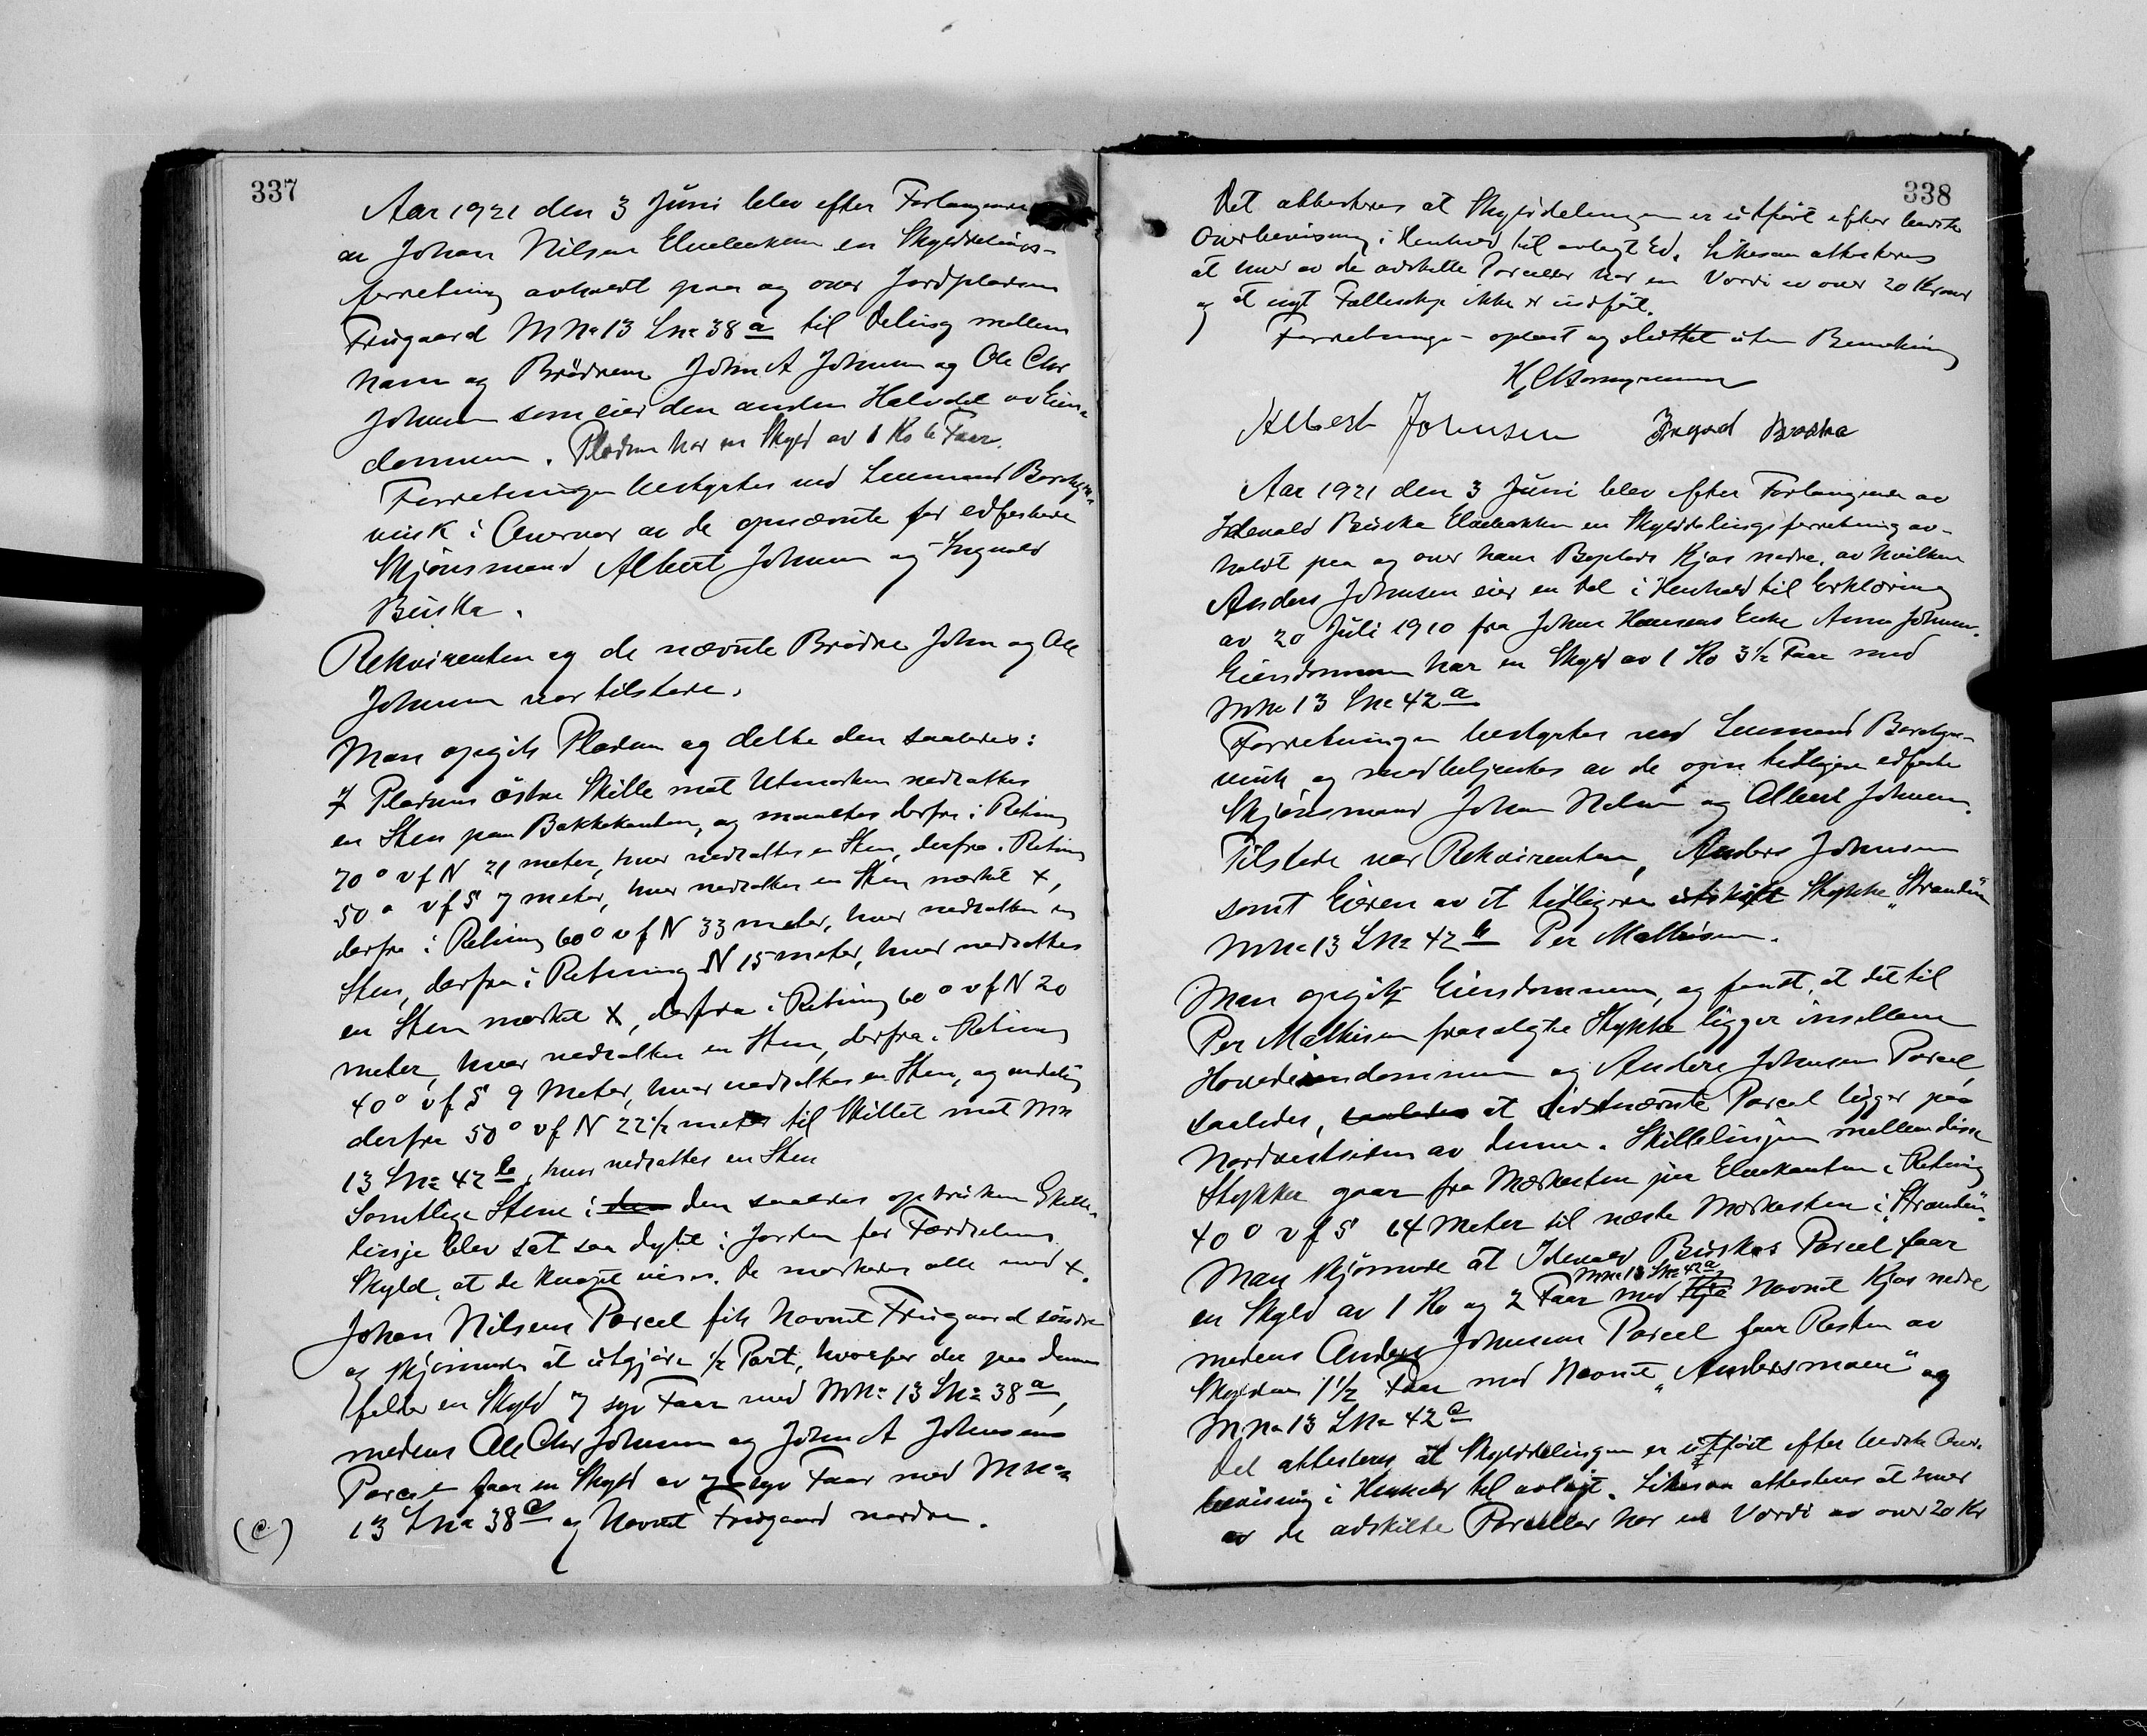 337
Aar 1921 den 3 Juni blev efter Forlangende
av Johan Nilsen Elvebakken en Skylddelings-
forretning avholdt paa og over Jordpladsen
Friigaard M No 13 L No 38 a til Deling mellem
ham og Brødrene John A Johnsen og Ole Chr
Johnsen som eier den anden Halvdel av Eien-
dommen. Pladsen har en Skyld av 1 Ko 6 Faar.
Forretningen bestyrtes ved Lensmand Borchgre-
vink i Overvær av de opnævnte før edfestede
Skjønsmænd Albert Johnsen og Ingvald
Buska.
Rekvirenten og de nævnte Brødre John og Ole
Johnsen var tilstede.
Man opgik Pladsen og delte den saaledes:
I Pladsens østre Skille mot Utmarken nedsattes
en Sten paa Bakkekanten, og maaltes derfra i Retning
70° v f N 21 meter, hvor nedsattes en Sten, derfra i Retning
50° v f S 7 meter, hvor nedsattes en Sten merket +,
derfra i Retning 60° v f N 33 meter, hvor nedsattes en
Sten, derfra i Retning N 15 meter, hvor nedsattes
en Sten merket +, derfra i Retning 60° v f N 20
meter, hvor nedsattes en Sten, derfra i Retning
40° v f S 9 Meter, hvor nedsattes en Sten, og endelig
derfra 50° v f N 22 1/2 meter til Skillet mot M No
13 L No 42 b, hvor nedsattes en Sten
Samtlige Stene i den den saaledes optrukne Skille-
linje blev sat saa dypt i Jorden for Færdselens
Skyld, at de knapt vises. De merkedes alle med +.
Johan Nilsens Parcel fik Navnet Friigaard søndre
og skjønnedes at utgjøre 1/2 Part, hvorfor der paa denne
falder en Skyld 7 syv Faar med M No 13 L No 38 a,
medens Ole Chr Johnsen og John A Johnsens
Parcel faar en Skyld av 7 syv Faar med M No
13 L No 38 c og Navnet Friigaard nordre.
(c)
338
Det attesteres at Skylddelingen er utført efter bedste
Overbevisning i Henhold til avlagt Ed. Likesaa attesteres
at hver av de adskilte Parceller har en Værdi av over 20 Kroner
og at nyt Fællesskap ikke er indført.
Forretningen oplæst og sluttet uten Bemerkning
H. C. Borchgrevink
Albert Johnsen Ingvald Buska
Aar 1921 den 3 Juni blev efter Forlangende av
Idevald Buska Elvebakken en Skylddelingsforretning av-
holdt paa og over hans Boplads Kjas nedre, av hvilken
Anders Johnsen eier en Del i Henhold til Erklæring
av 20 Juli 1910 fra Johan Hansens Enke Anna Johnsen.
Eiendommen har en Skyld av 1 Ko 3 1/2 Faar med
M No 13 L No 42 a
Forretningen bestyrtes ved Lensmand Borchgre-
vink og medbetjentes av de opn. tidligere edfestede
Skjønsmænd Johan Nilsen og Albert Johnsen.
Tilstede var Rekvirenten, Anders Johnsen
samt Eieren av et tidligere utskilt Stykke "Stranden"
M No 13 L No 42 b Per Mathisen.
Man opgik Eiendommen, og fandt, at det til
Per Mathisen frasolgte Stykke ligger imellem
Hovedeiendommen og Anders Johnsens Parcel,
saaledes, saaledes at sidstnævnte Parcel ligger paa
Nordvestsiden av denne. Skillelinjen mellem disse
Stykker gaar fra Merkesten paa Elvekanten i Retning
40° v f S 64 Meter til næste Merkesten i "Stranden".
Man skjønnede at Idevald Buskas Parcel faar
M No 13 L No 42 a
en Skyld av 1 Ko og 2 Faar med Kja Navnet Kjas nedre
medens Anders Johnsens Parcel faar Resten av
Skylden 1 1/2 Faar med Navnet "Andersmoen" og
M No 13 L No 42 c
Det attesteres at Skylddelingen er utført efter bedste Over-
bevisning i Henhold til avlagt. Likesaa attesteres at hver
av de adskilte Parceller har en Værdi av over 20 Kr